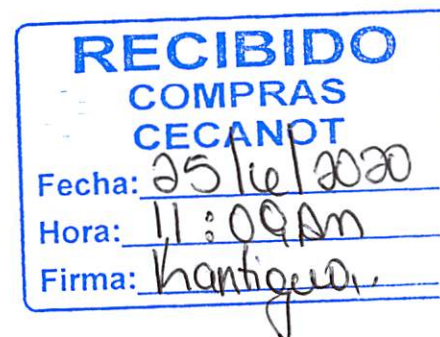 RECIBIDO
COMPRAS
CECANOT
Fecha: 25/6/2020
Hora: 11:09Am
Firma: Kantigua